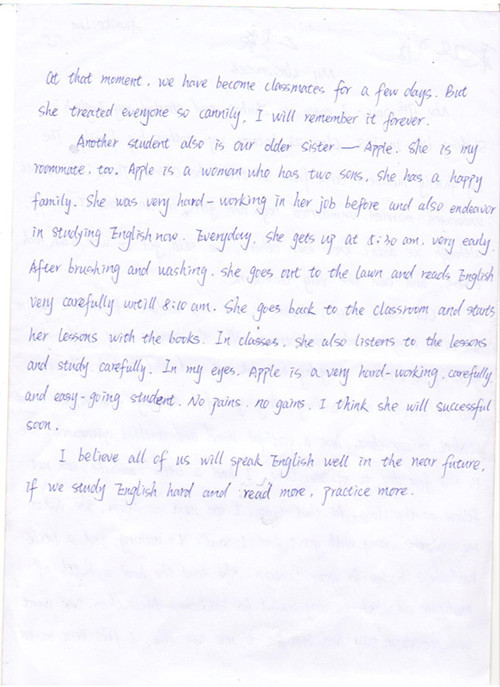 at that moment, we have become classmates for a few days. But
she treated everyone so cannily, I will remember it forever.
Another student also is our older sister — Apple. she is my
roommate, too. Apple is a woman who has two sons, she has a happy
family. She was very hard-working in her job before and also endeavor
in studying English now. Everyday, she gets up at 5:30 am, very early.
After brushing and washing, she goes out to the lawn and reads English
very carefully until 8:10 am. She goes back to the classroom and starts
her lessons with the books. In classes, she also listens to the lessons
and study carefully. In my eyes, Apple is a very hard-working, carefully
and easy-going student. No pains, no gains. I think she will successful
soon.
I believe all of us will speak English well in the near future,
if we study English hard and read more, practice more.